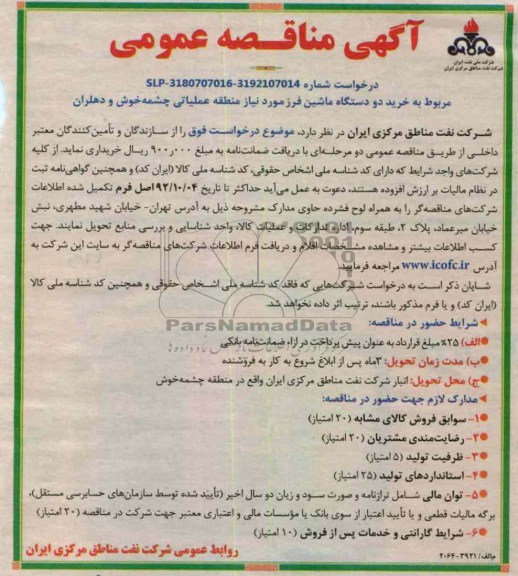 آگهی مناقصه عمومی
شرکت ملی نفت ایران
شرکت نفت مناطق مرکزی ایران
درخواست شماره SLP-3180707016-3192107014
مربوط به خرید دو دستگاه ماشین فرز مورد نیاز منطقه عملیاتی چشمه‌خوش و دهلران
شرکت نفت مناطق مرکزی ایران در نظر دارد، موضوع درخواست فوق را از سازندگان و تأمین‌کنندگان معتبر
داخلی از طریق مناقصه عمومی دو مرحله‌ای با دریافت ضمانت‌نامه به مبلغ ۹۰۰ر۰۰۰ ریال خریداری نماید. از کلیه
شرکت‌های واجد شرایط که دارای کد شناسه ملی اشخاص حقوقی، کد شناسه ملی کالا (ایران کد) و همچنین گواهی‌نامه ثبت
در نظام مالیات بر ارزش افزوده هستند، دعوت به عمل می‌آید حداکثر تا تاریخ ۹۲/۱۰/۰۴ اصل فرم تکمیل شده اطلاعات
شرکت‌های مناقصه‌گر را به همراه لوح فشرده حاوی مدارک مشروحه ذیل به آدرس تهران- خیابان شهید مطهری، نبش
خیابان میرعماد، پلاک ۲، طبقه سوم، اداره تدارکات و عملیات کالا، واحد شناسایی و بررسی منابع تحویل نمایند. جهت
کسب اطلاعات بیشتر و مشاهده مشخصات اقلام و دریافت فرم اطلاعات شرکت‌های مناقصه‌گر به سایت این شرکت به
آدرس www.icofc.ir مراجعه فرمایید.
شایان ذکر است به درخواست شرکت‌هایی که فاقد کد شناسه ملی اشخاص حقوقی و همچنین کد شناسه ملی کالا
(ایران کد) و یا فرم مذکور باشند، ترتیب اثر داده نخواهد شد.
ParsNamadData
شرایط حضور در مناقصه:
الف) ۲۵٪ مبلغ قرارداد به عنوان پیش پرداخت در ازاء ضمانت‌نامه بانکی
ب) مدت زمان تحویل: ۳ماه پس از ابلاغ شروع به کار به فروشنده
ج) محل تحویل: انبار شرکت نفت مناطق مرکزی ایران واقع در منطقه چشمه‌خوش
مدارک لازم جهت حضور در مناقصه:
۱- سوابق فروش کالای مشابه (۲۰ امتیاز)
۲- رضایت‌مندی مشتریان (۲۰ امتیاز)
۳- ظرفیت تولید (۵ امتیاز)
۴- استانداردهای تولید (۲۵ امتیاز)
۵- توان مالی شامل ترازنامه و صورت سود و زیان دو سال اخیر (تأیید شده توسط سازمان‌های حسابرسی مستقل)،
برگه مالیات قطعی و یا تأیید اعتبار از سوی بانک یا مؤسسات مالی و اعتباری معتبر جهت شرکت در مناقصه (۲۰ امتیاز)
۶- شرایط گارانتی و خدمات پس از فروش (۱۰ امتیاز)
روابط عمومی شرکت نفت مناطق مرکزی ایران
م‌الف/ ۳۹۲۱-۲۰۶۴